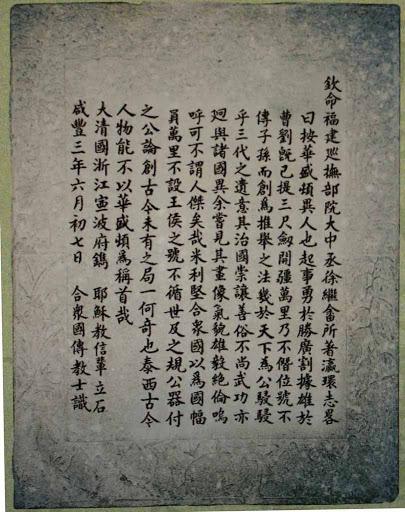 欽命福建巡撫部院大中丞徐繼畬所著瀛環志畧
曰按華盛頓異人也起事勇於勝廣割據雄於
曹劉旣已提三尺劍開疆萬里乃不僭位號不
傳子孫而創爲推舉之法幾於天下爲公駸駸
乎三代之遺意其治國崇讓善俗不尚武功亦
廻與諸國異余嘗見其畫像氣貌雄毅絶倫嗚
呼可不謂人傑矣哉米利堅合衆國以爲國幅
員萬里不設王侯之號不循世及之規公器付
之公論創古今未有之局一何奇也泰西古今
人物能不以華盛頓爲稱首哉
大清國浙江寧波府鐫 耶穌教信輩立石
咸豐三年六月初七日 合衆國傳教士識